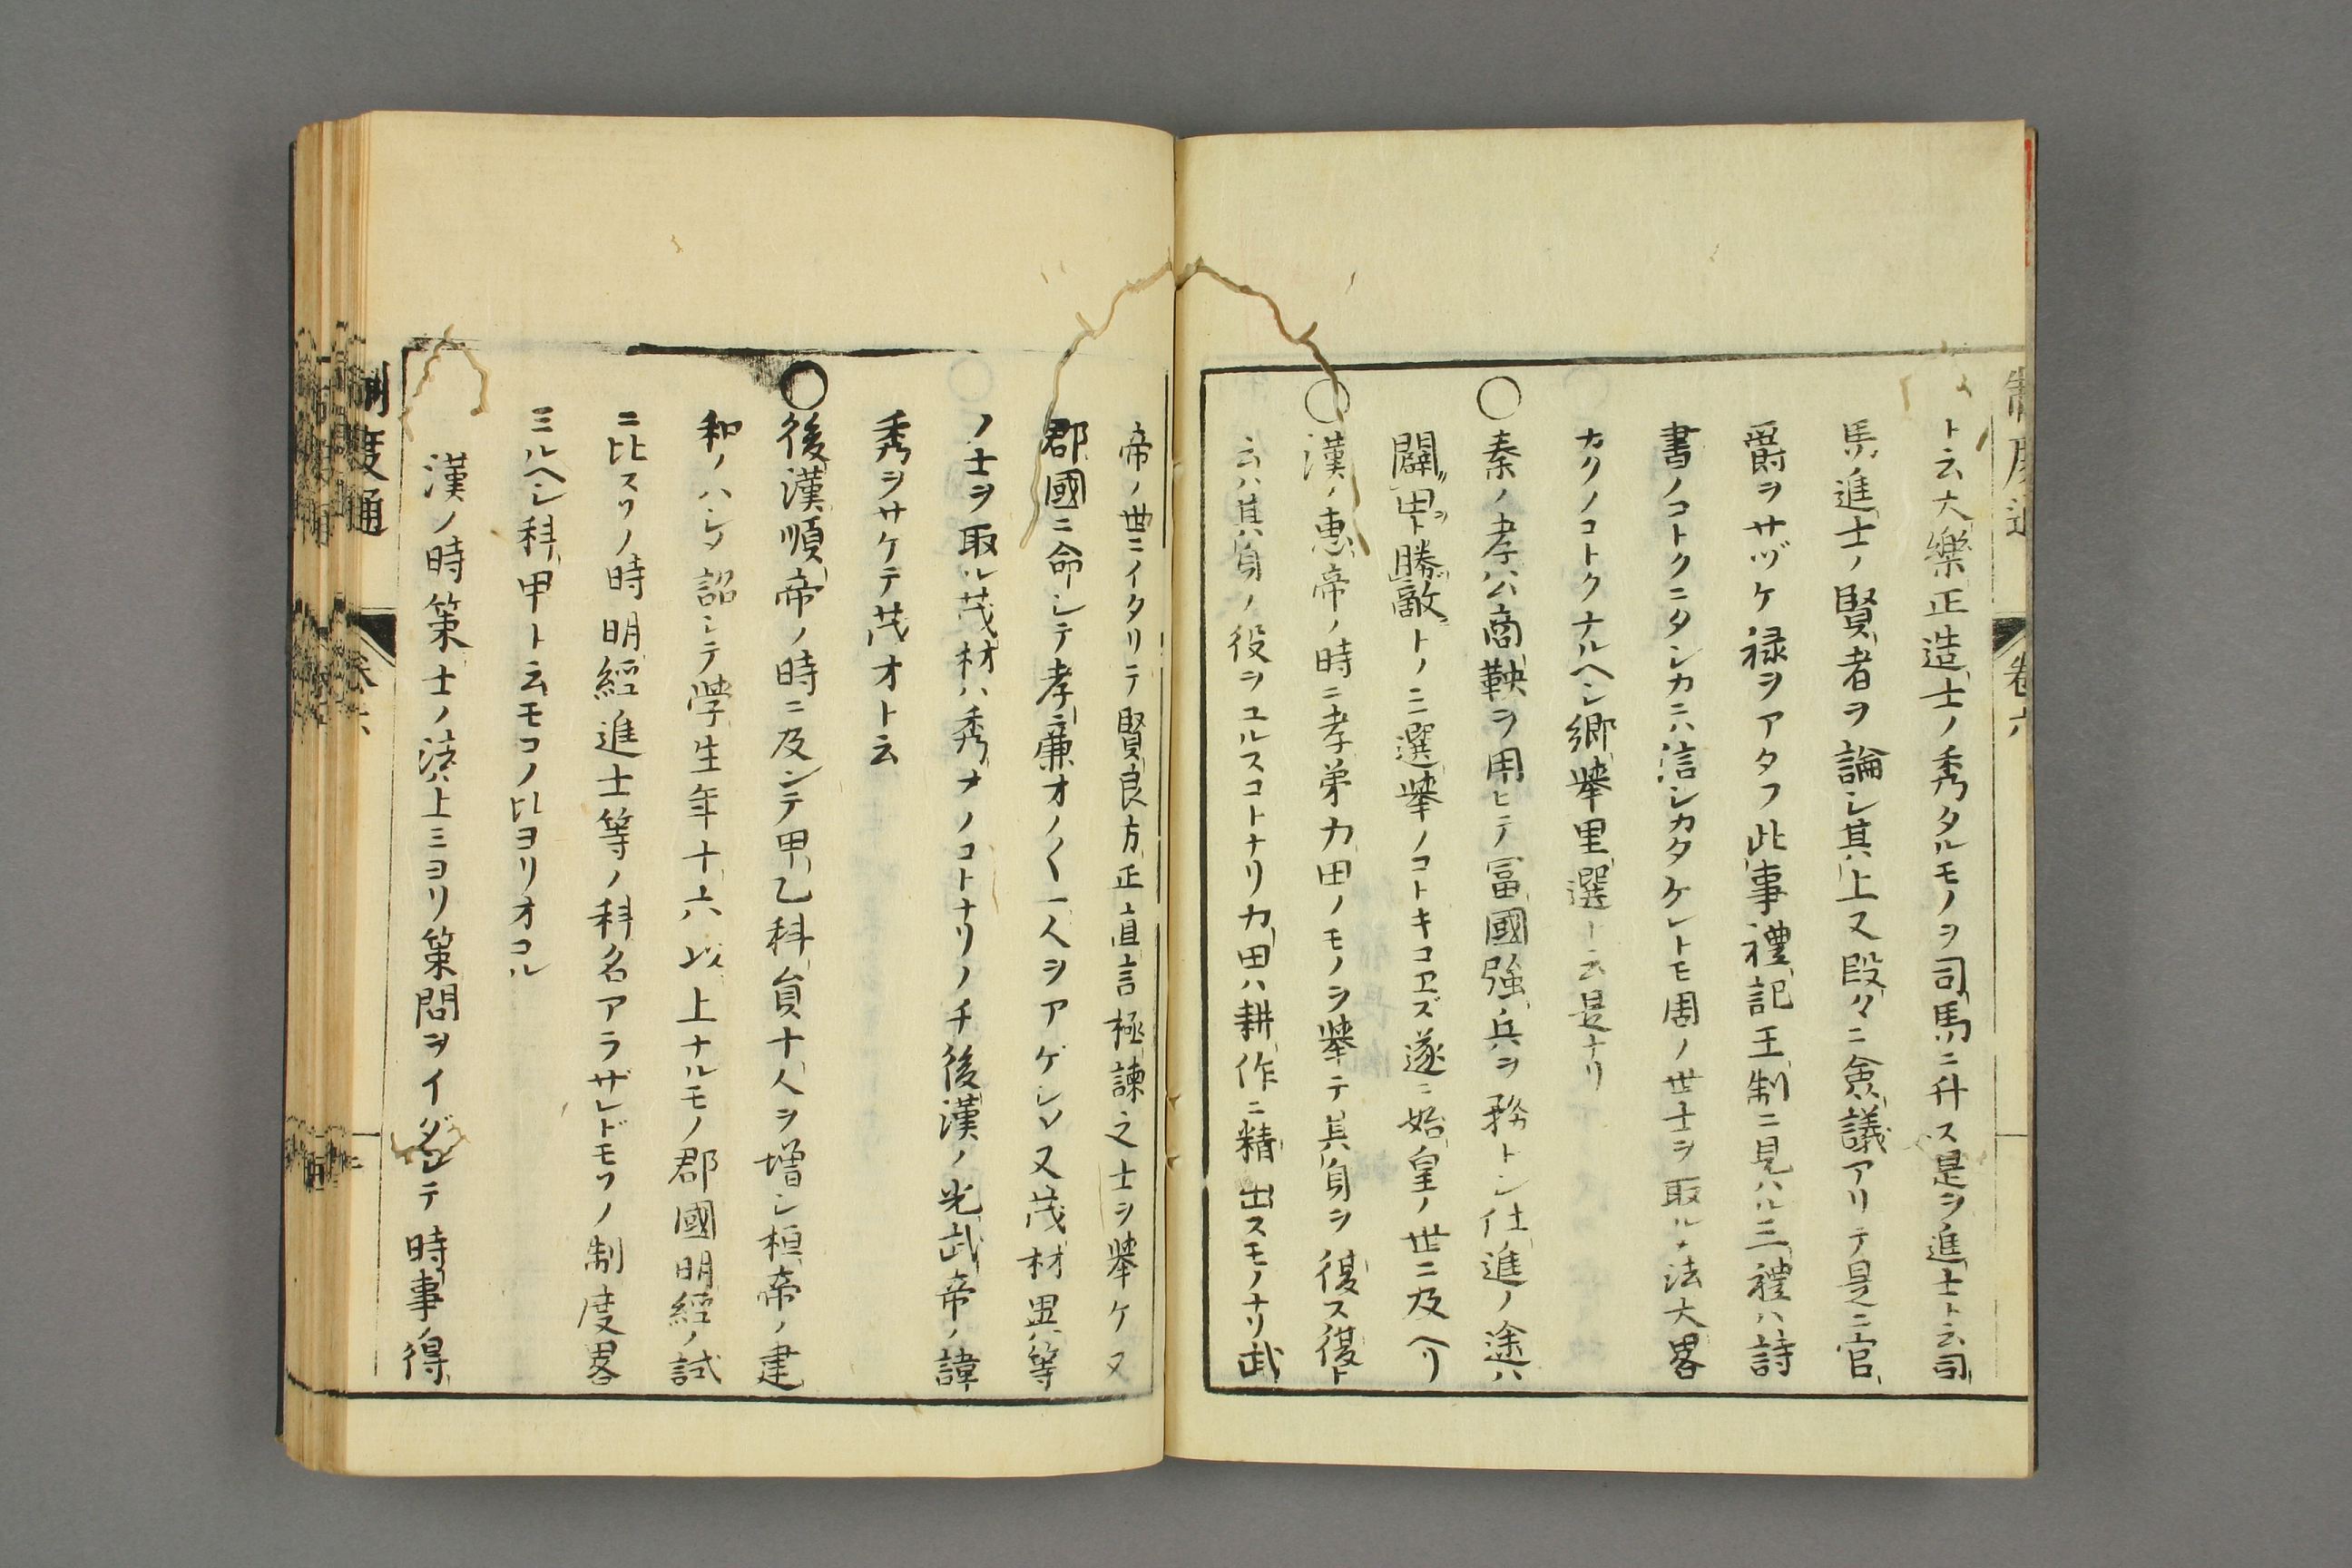 制度通
卷六
ト云大樂正造士ノ秀タルモノヲ司馬ニ升ス是ヲ進士ト云司
馬進士ノ賢者ヲ論シ其上又段々ニ僉議アリテ是ニ官
爵ヲサヅケ禄ヲアタフ此事禮記王制ニ見ハル三禮ハ詩
書ノコトクニタシカニハ信シカタケレトモ周ノ世士ヲ取ルノ法大畧
カクノコトクナルヘシ郷舉里選ト云是ナリ
○秦ノ孝公商鞅ヲ用ヒテ冨國強兵ヲ務トシ仕進ノ途ハ
闢田ト勝敵トノミ選舉ノコトキコヱズ遂ニ始皇ノ世ニ及ヘリ
○漢ノ惠帝ノ時ニ孝弟力田ノモノヲ舉テ其身ヲ復ス復ト
云ハ其身ノ役ヲユルスコトナリ力田ハ耕作ニ精出スモノナリ武
帝ノ世ニイタリテ賢良方正直言極諫之士ヲ舉ケ又
郡國ニ命シテ孝廉オノ〱一人ヲアゲシム又茂材異等
ノ士ヲ取ル茂材ハ秀才ノコトナリノチ後漢ノ光武帝ノ諱
秀ヲサケテ茂才ト云
○後漢順帝ノ時ニ及ンテ甲乙科員十人ヲ增シ桓帝ノ建
和ノハシメ詔シテ學生年十六以上ナルモノ郡國明經ノ試
ニ比スソノ時明經進士等ノ科名アラザレドモソノ制度畧
ミルヘシ科甲ト云モコノ比ヨリオコル
漢ノ時策士ノ法ハ上ミヨリ策問ヲイダシテ時事ノ得
制度通
卷六